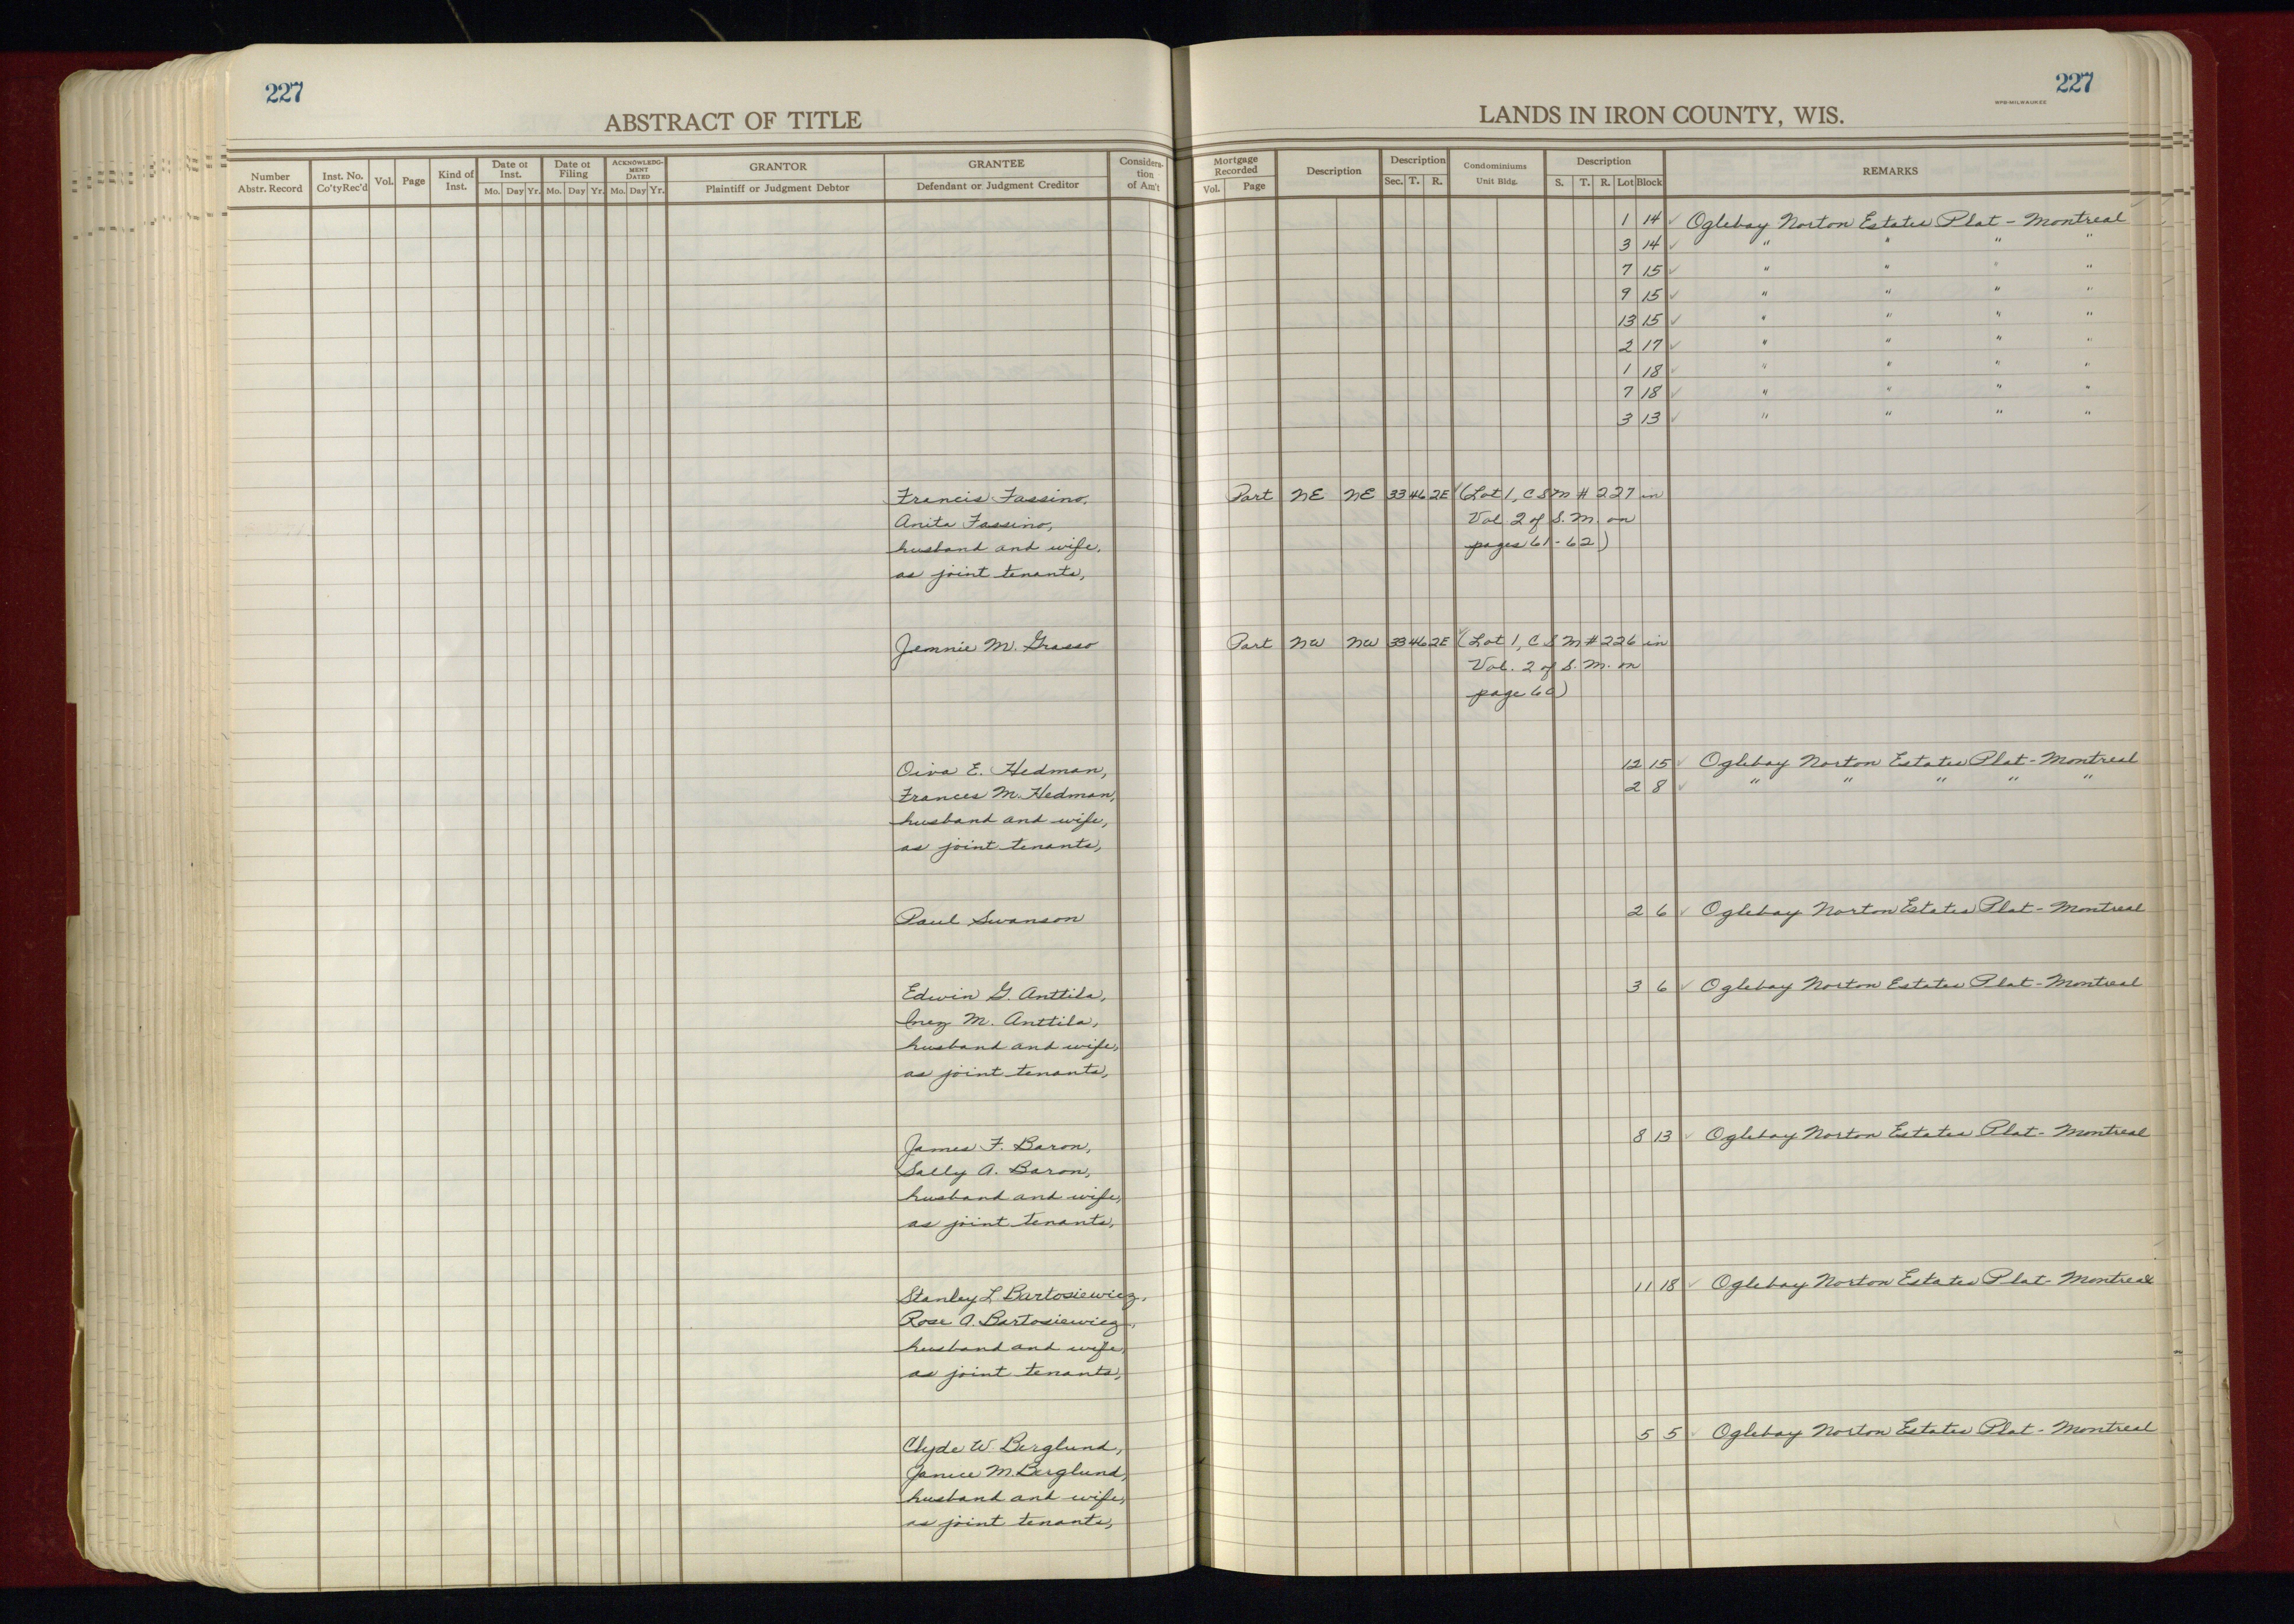 227
ABSTRACT OF TITLE
Number Abstr. Record
Inst. No. Co'ty Rec'd
Vol.
Page
Kind of Inst.
Date of Inst.
Mo. Day Yr.
Date of Filing
Mo. Day Yr.
ACKNOWLEDGMENT DATED
Mo. Day Yr.
GRANTOR
Plaintiff or Judgment Debtor
GRANTEE
Defendant or Judgment Creditor
Considera-
tion
of Am't
Francis Fassino,
Anita Fassino,
husband and wife,
as joint tenants,
Jennie M. Grasso
Oiva E. Hedman,
Frances M. Hedman,
husband and wife,
as joint tenants,
Paul Swanson
Edwin G. Anttila,
Inez M. Anttila,
husband and wife,
as joint tenants,
James F. Baron,
Sally A. Baron,
husband and wife,
as joint tenants,
Stanley L Bartosiewicz,
Rose A. Bartosiewicz,
husband and wife,
as joint tenants,
Clyde W. Berglund,
Janice M. Berglund,
husband and wife,
as joint tenants,
227
WPB-MILWAUKEE
LANDS IN IRON COUNTY, WIS.
Mortgage Recorded
Vol. Page
Description
Description
Sec. T. R.
Condominiums
Unit Bldg.
Description
S. T. R. Lot Block
REMARKS
1 14 ✓ Oglebay Norton Estates Plat - Montreal
3 14 ✓ " " " "
7 15 ✓ " " " "
9 15 ✓ " " " "
13 15 ✓ " " " "
2 17 ✓ " " " "
1 18 ✓ " " " "
7 18 ✓ " " " "
3 13 ✓ " " " "
Part NE NE 33 46 2E ✓ (Lot 1, C S M # 227 in
Vol. 2 of S. M. on
pages 61-62)
Part NW NW 33 46 2E ✓ (Lot 1, C S M # 226 in
Vol. 2 of S. M. on
page 60)
12 15 ✓ Oglebay Norton Estates Plat - Montreal
2 8 ✓ " " " " "
2 6 ✓ Oglebay Norton Estates Plat - Montreal
3 6 ✓ Oglebay Norton Estates Plat - Montreal
8 13 ✓ Oglebay Norton Estates Plat - Montreal
11 18 ✓ Oglebay Norton Estates Plat - Montreal
5 5 ✓ Oglebay Norton Estates Plat - Montreal